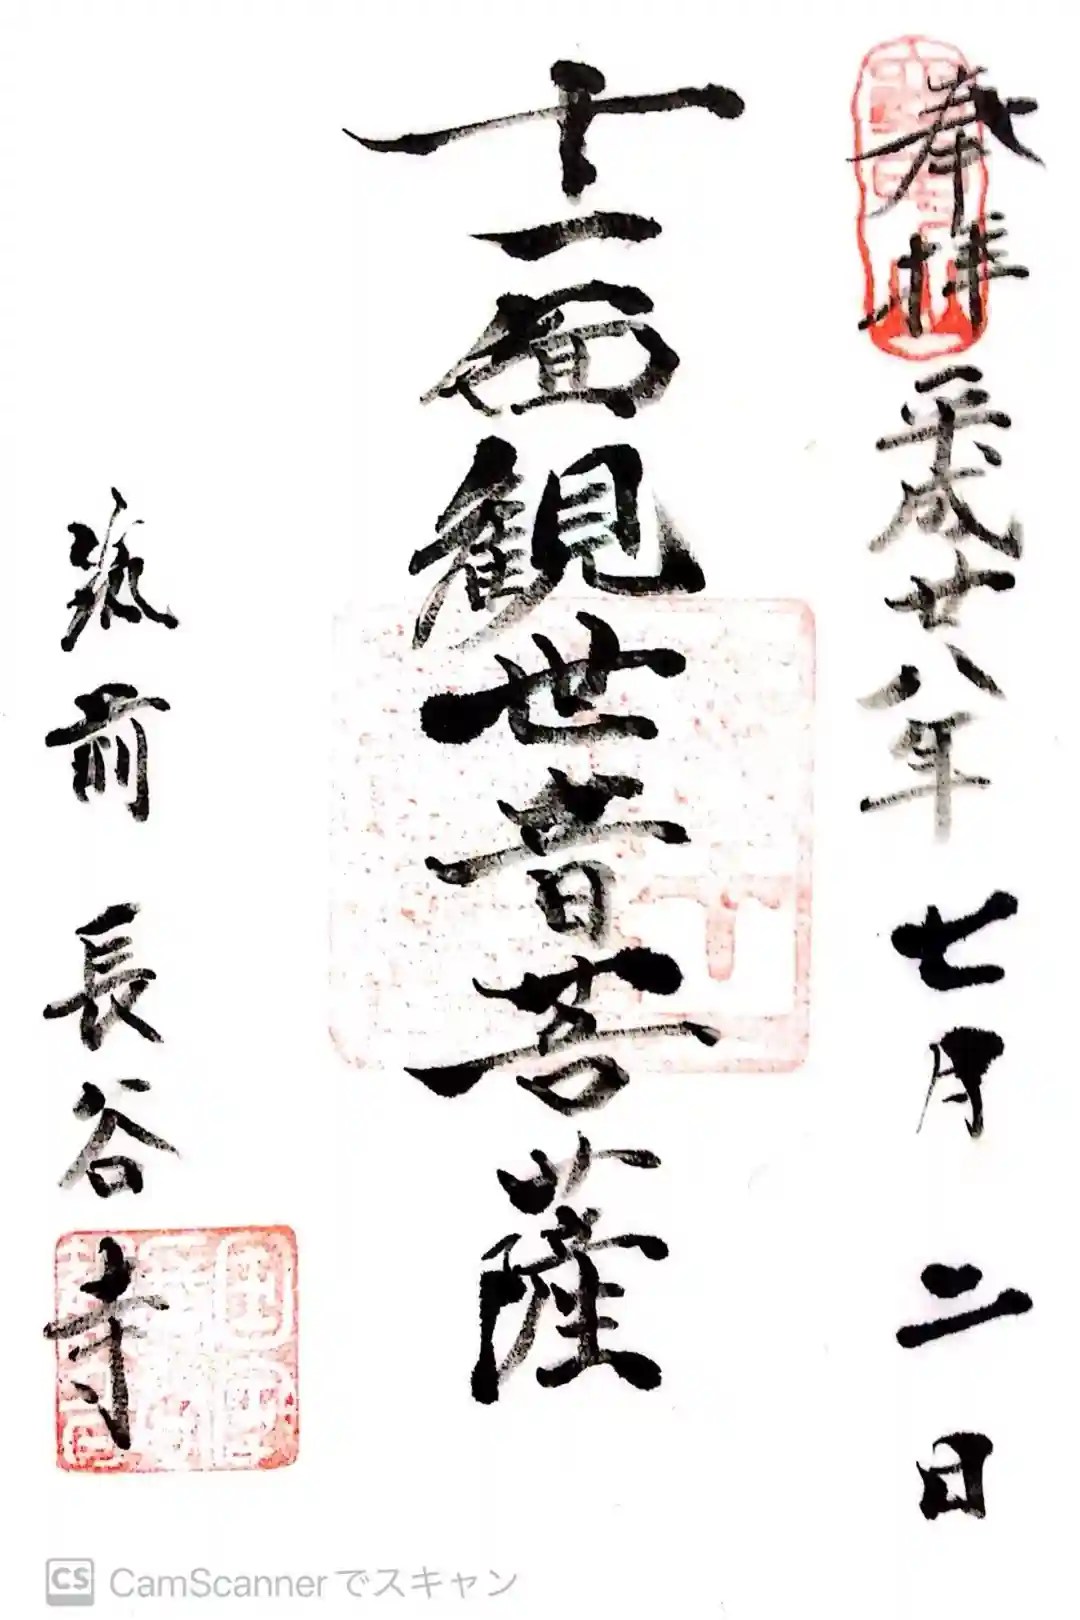 奉拝
平成廿八年 七月 二日
十一面観世音菩薩
筑前 長谷寺
CS CamScannerでスキャン